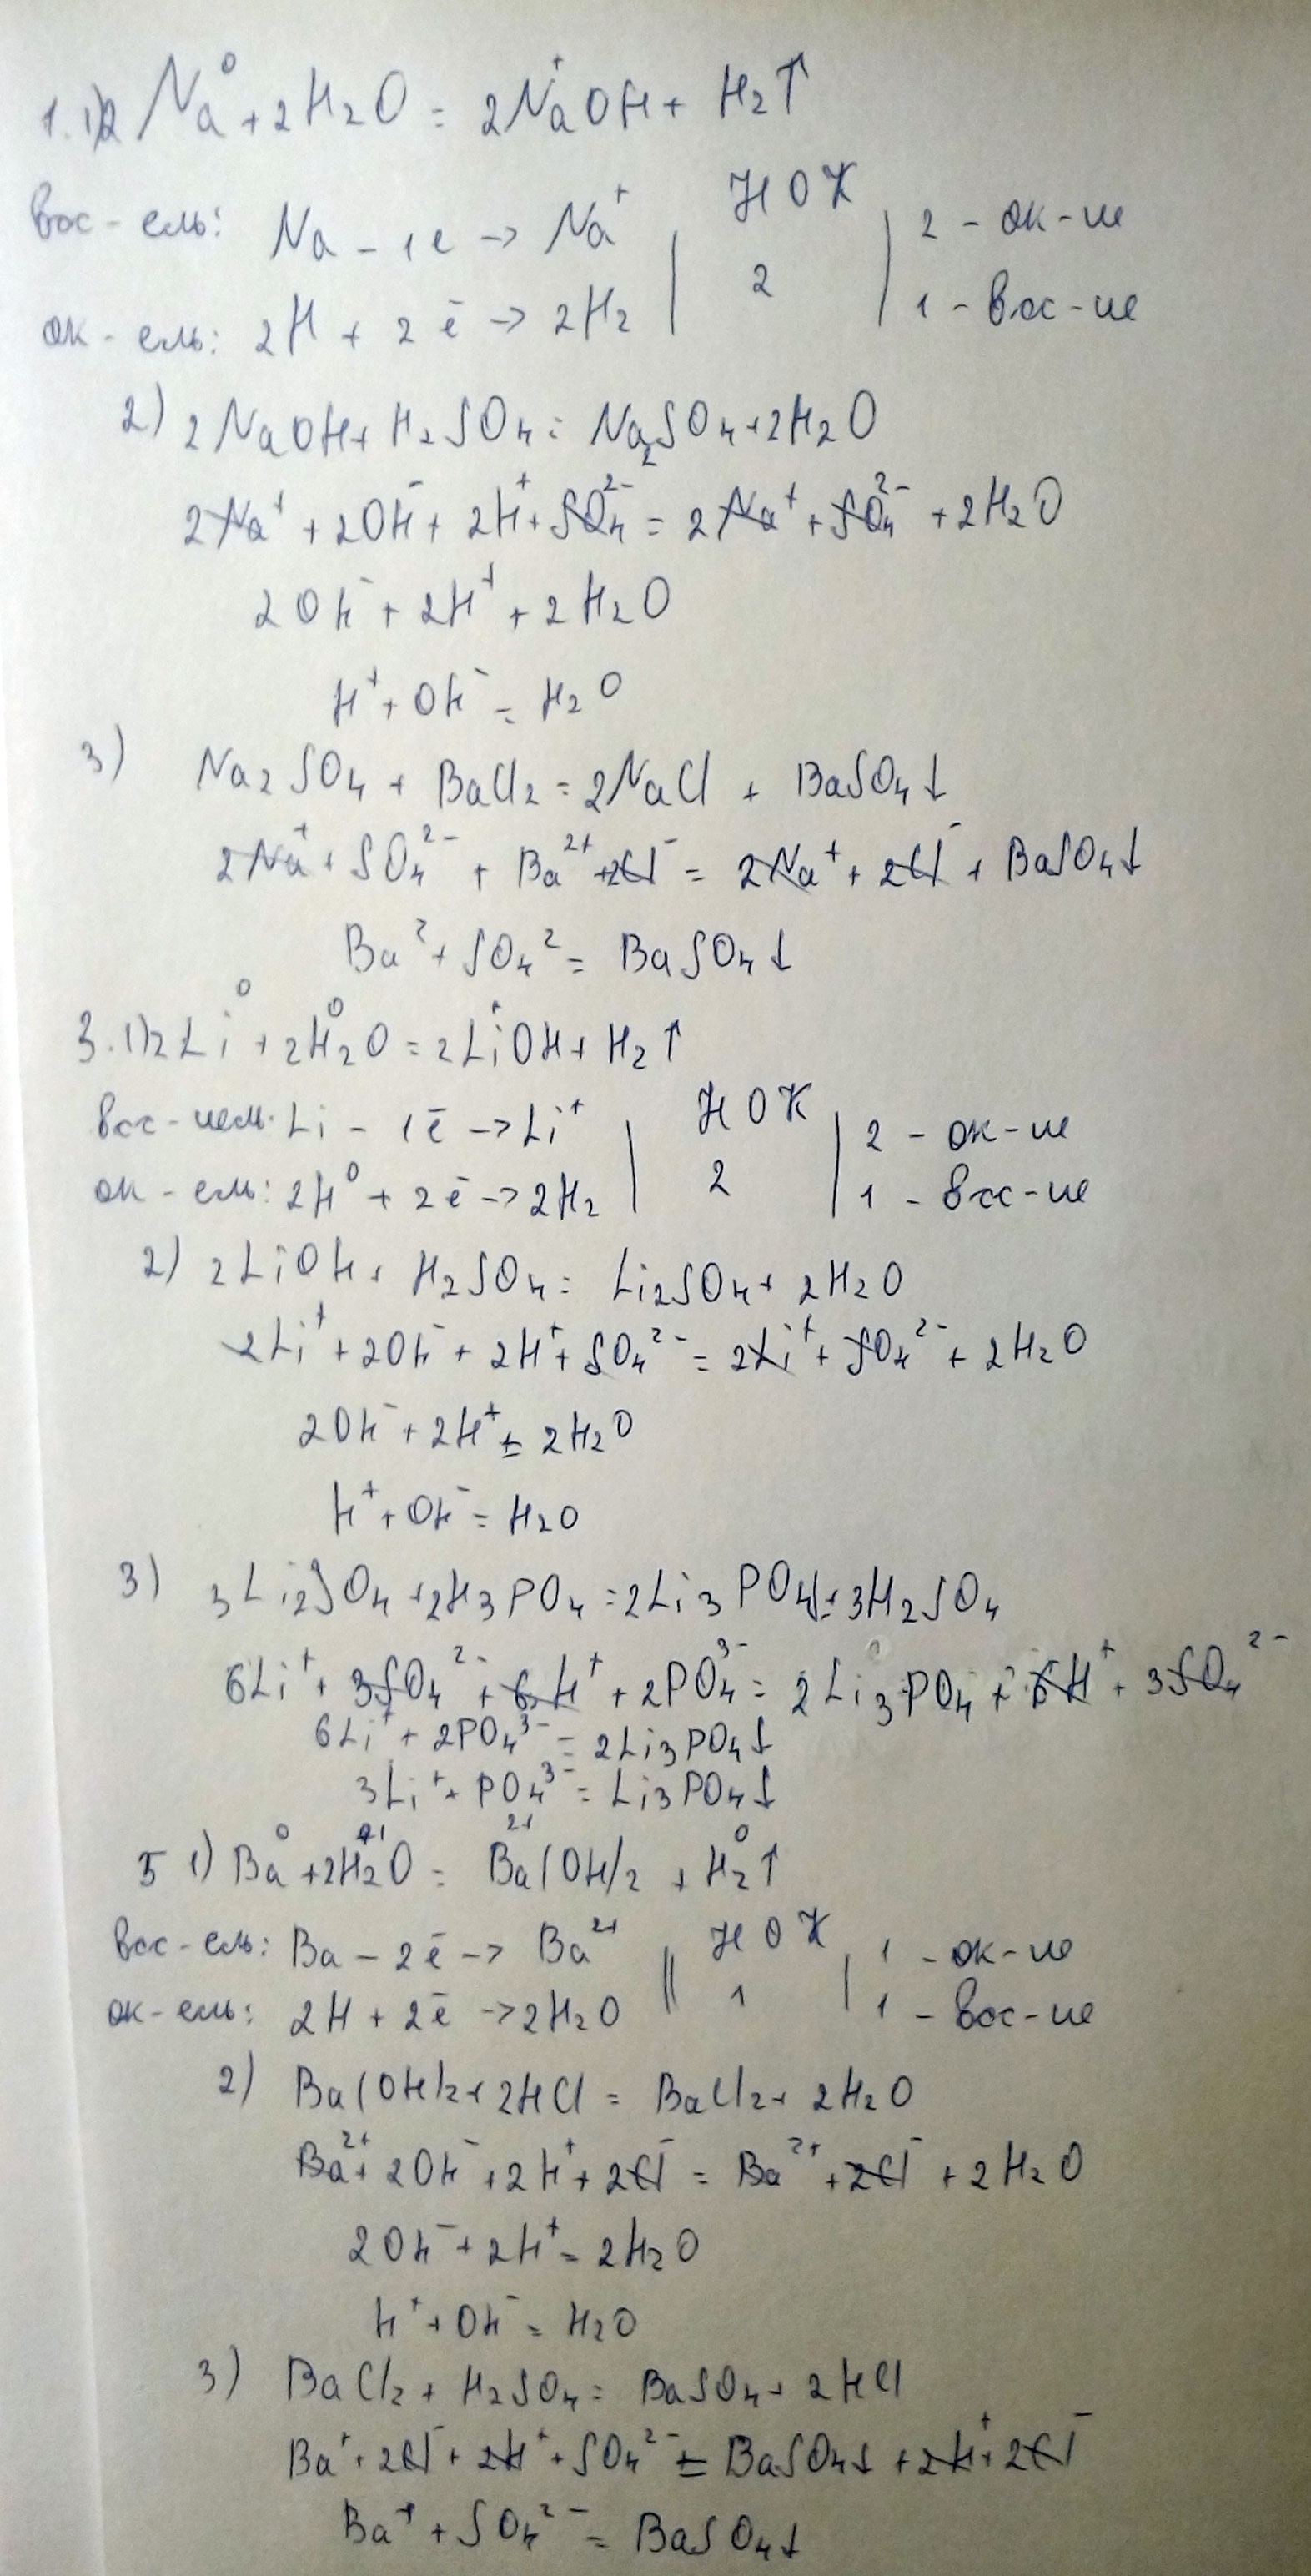 1. 1) 2Na⁰ + 2H₂O = 2Na⁺OH + H₂↑
НОК
вос-ель: Na - 1e → Na⁺ | 2 | 2 - ок-ие
ок-ель: 2H + 2ē → 2H₂ | | 1 - вос-ие
2) 2NaOH + H₂SO₄ = Na₂SO₄ + 2H₂O
2Na⁺ + 2OH⁻ + 2H⁺ + SO₄²⁻ = 2Na⁺ + SO₄²⁻ + 2H₂O
2OH⁻ + 2H⁺ + 2H₂O
H⁺ + OH⁻ = H₂O
3) Na₂SO₄ + BaCl₂ = 2NaCl + BaSO₄↓
2Na⁺ + SO₄²⁻ + Ba²⁺ + 2Cl⁻ = 2Na⁺ + 2Cl⁻ + BaSO₄↓
Ba² + SO₄² = BaSO₄↓
3. 1) 2Li⁰ + 2H⁰₂O = 2Li⁺OH + H₂↑
НОК
вос-иель: Li - 1ē → Li⁺ | 2 | 2 - ок-ие
ок-ель: 2H⁰ + 2ē → 2H₂ | | 1 - вос-ие
2) 2LiOH + H₂SO₄ = Li₂SO₄ + 2H₂O
2Li⁺ + 2OH⁻ + 2H⁺ + SO₄²⁻ = 2Li⁺ + SO₄²⁻ + 2H₂O
2OH⁻ + 2H⁺ = 2H₂O
H⁺ + OH⁻ = H₂O
3) 3Li₂SO₄ + 2H₃PO₄ = 2Li₃PO₄↓ + 3H₂SO₄
6Li⁺ + 3SO₄²⁻ + 6H⁺ + 2PO₄³⁻ = 2Li₃PO₄ + 6H⁺ + 3SO₄²⁻
6Li⁺ + 2PO₄³⁻ = 2Li₃PO₄↓
3Li⁺ + PO₄³⁻ = Li₃PO₄↓
5 1) Ba⁰ + 2H₂O = Ba²⁺(OH)₂ + H₂⁰↑
НОК
вос-ель: Ba - 2ē → Ba²⁺ || 1 | 1 - ок-ие
ок-ель: 2H + 2ē → 2H₂O || | 1 - вос-ие
2) Ba(OH)₂ + 2HCl = BaCl₂ + 2H₂O
Ba²⁺ + 2OH⁻ + 2H⁺ + 2Cl⁻ = Ba²⁺ + 2Cl⁻ + 2H₂O
2OH⁻ + 2H⁺ = 2H₂O
H⁺ + OH⁻ = H₂O
3) BaCl₂ + H₂SO₄ = BaSO₄ + 2HCl
Ba⁺ + 2Cl⁻ + 2H⁺ + SO₄²⁻ = BaSO₄↓ + 2H⁺ + 2Cl⁻
Ba⁺ + SO₄²⁻ = BaSO₄↓